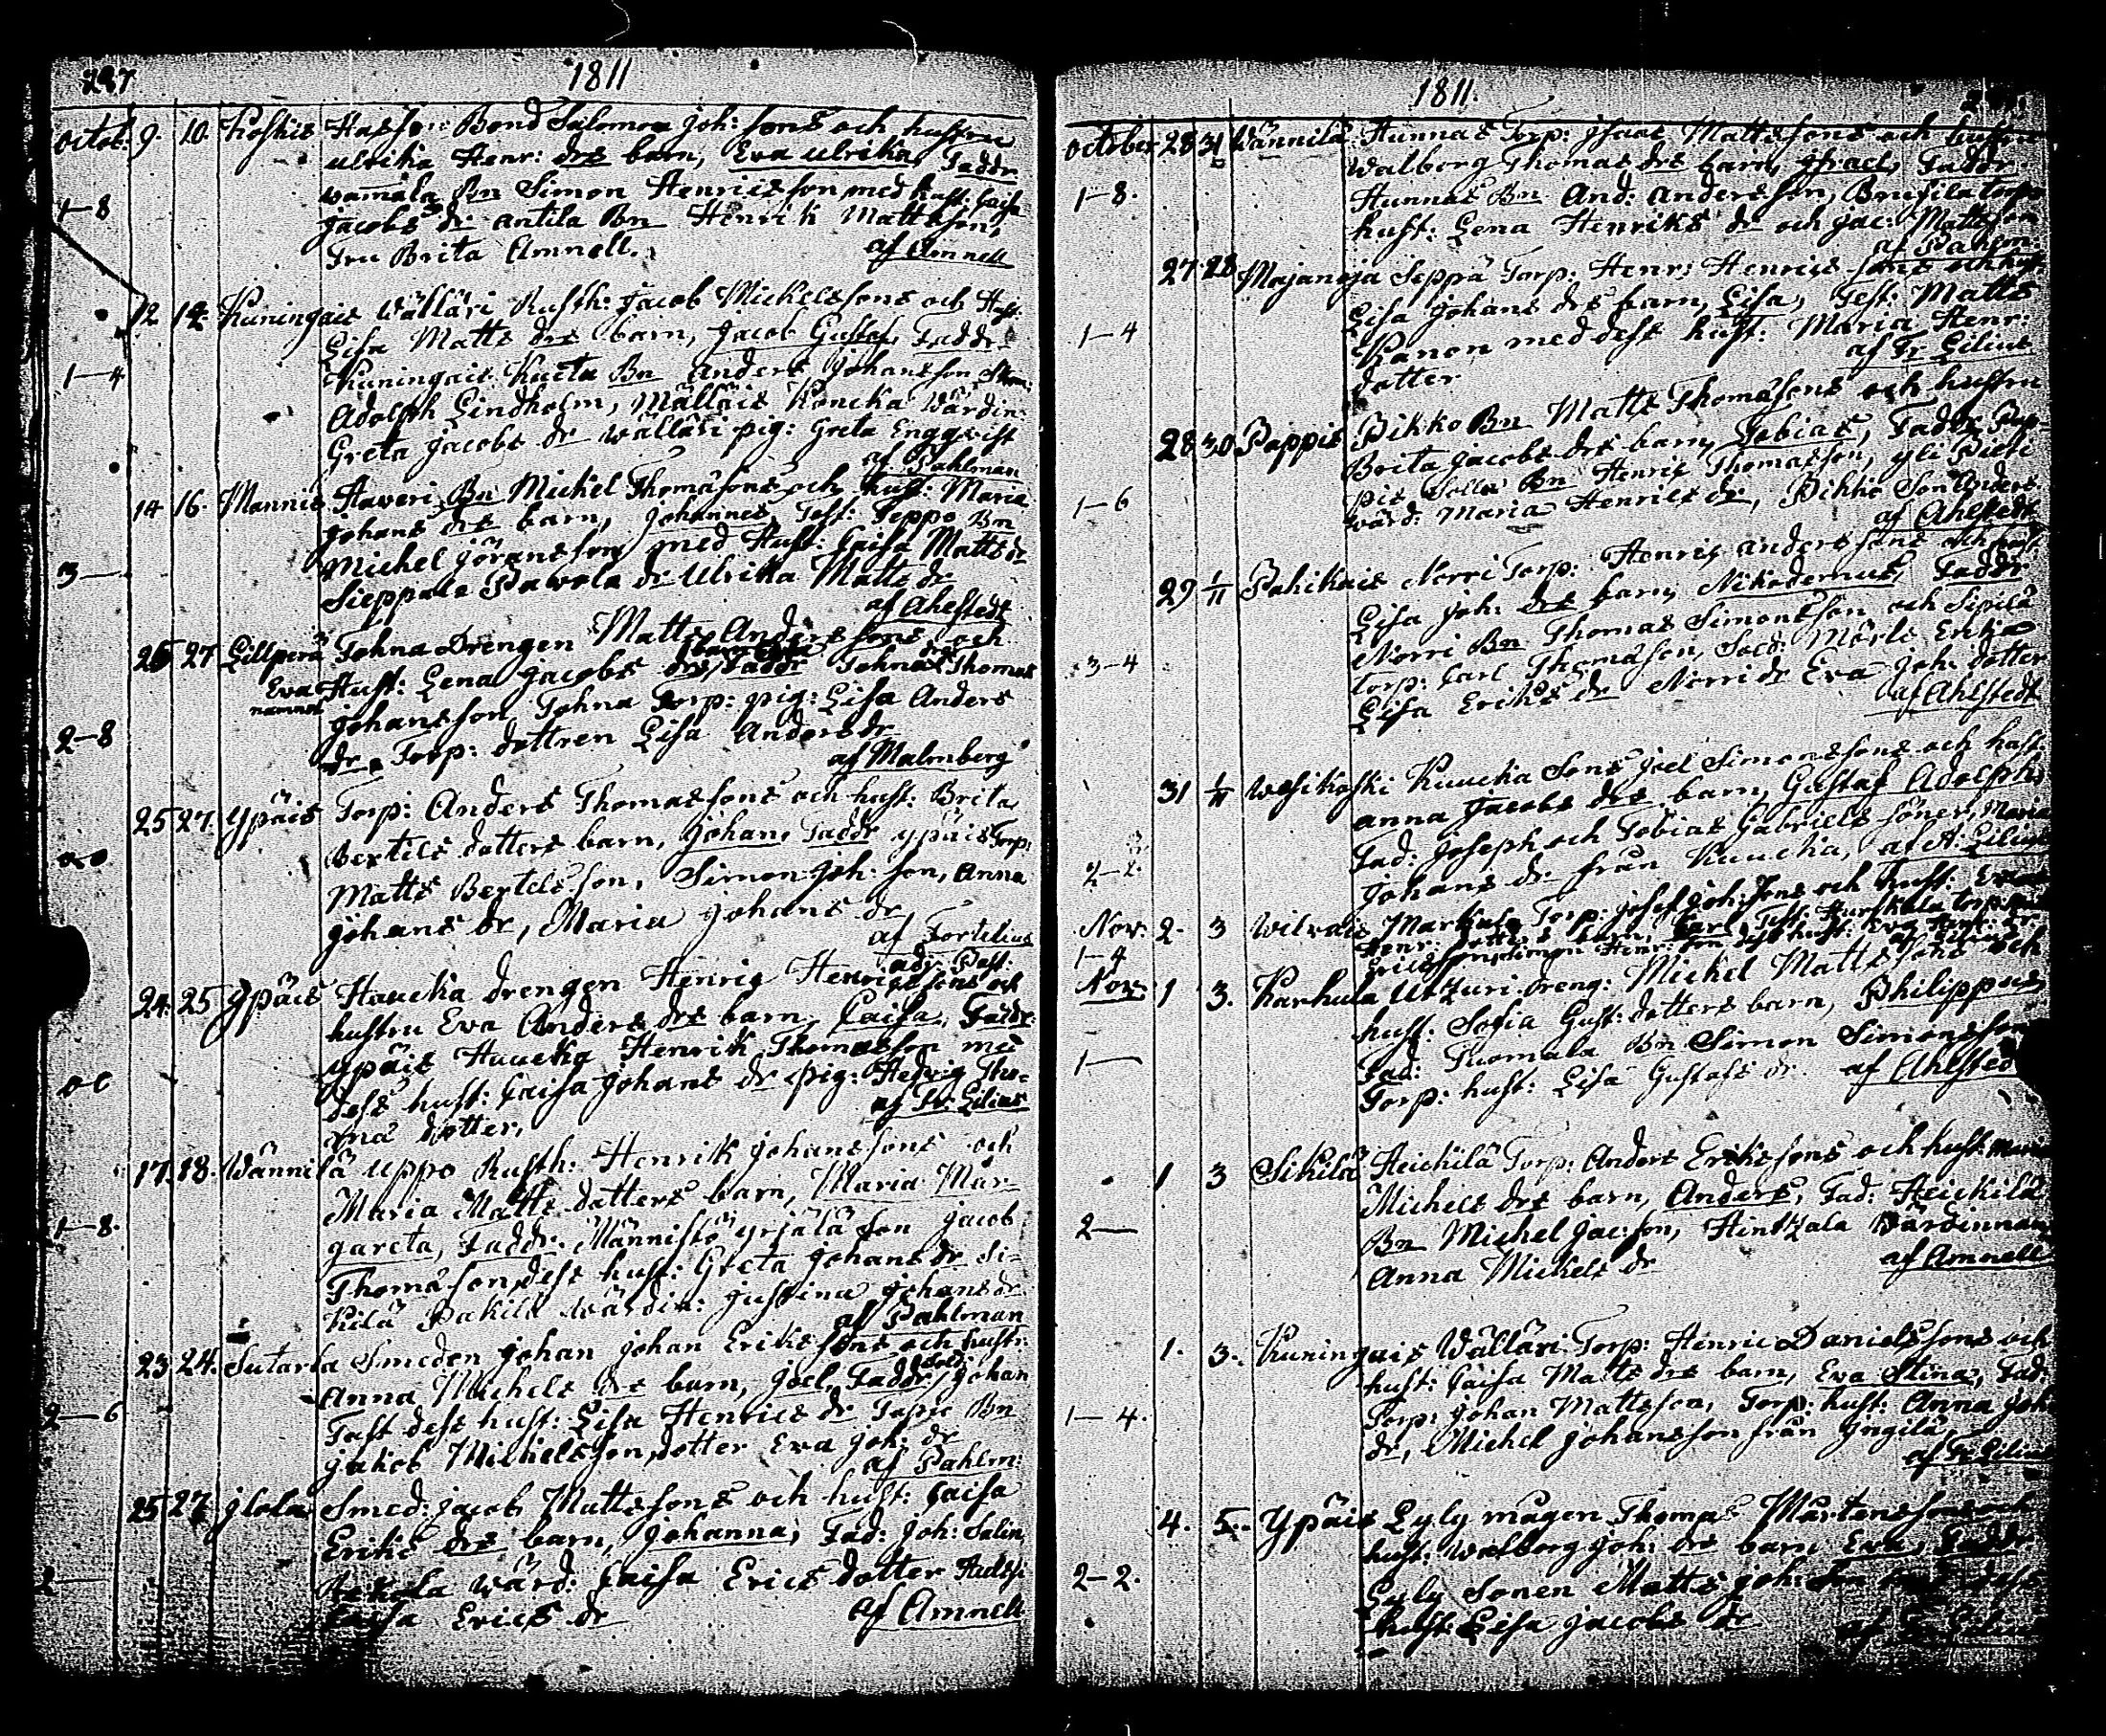 297
1811
octob: 9. 10. Koskis Hassoi Bond Salomon Joh: sons och hustru
Ulrika Henr: drs barn, Eva Ulrika, Faddr
Wamala Bn Simon Henricsson med hust: Caisa
1-8
Jacobs dr Antila Bn Henrik Mattsson,
Fru Brita Amnell. af Amnell
12 14 Kuningais Wälläri Rusth: Jacob Mickelssons och Hust:
Lisa Matts drs barn, Jacob Gustaf, Faddr
1-4
Kuningais Kusta Bn Anders Johansson
Adolph Lindholm, Mälläis Koncka Wärdin:
Greta Jacobs dr Wälläri pig: Greta Enggvist
af Pahlman
14 16. Mannis Haveri Bn Mickel Thomæsons och hust: Maria
Johans drs barn, Johannes Test: Seppo Bn
Michel Göransson med Hust: Caisa Matts dr
3-
Sieppala Pavola dr Ulrika Matts dr
af Ahlstedt
25 27 Lillperä Tohna Drengen Matts Anderssons och
Eva namnet
Hust: Lena Jacobs drs barn Faddr Tohna Thomas
Johansson Tohna Torp: pig: Lisa Anders
2-8
dr. Torp: dottren Lisa Anders dr
af Malmberg
25 27 Ypäis Torp: Anders Thomassons och hust: Brita
Bertils dotters barn, Johan, Faddr Ypäis Torp:
0-0
Matts Bertelsson, Simon Joh: son, Anna
Johans dr, Maria Johans dr
af Fortelius
adj: Past.
24. 25 Ypäis Haucka drengen Henric Henricssons och
hustru Eva Anders drs barn, Caisa, Faddr:
Ypäis Haucka Henrik Thomasson med
0-0
dess hust: Caisa Johans dr pig: Hedvig Tho-
mæ dotter, af Fr: Lilius
17. 18. Wännilä Uppo Rusth: Henrik Johanssons och
Maria Matts dotters barn, Maria Mar-
1-8.
gareta, Faddr. Männistö Yrjälä son Jacob
Thomæson, dess hust: Greta Johans dr Si-
kilä Pakilä Wärdin: Justina Johans dr
af Pahlman
23 24. Sutarla Smeden Johan Johan Erikssons och hustr:
Anna Michels drs barn, Joel, Faddr, Sold: Johan
2-6
Fast dess hust: Lisa Henrics dr Bn
Jakob Michelsson, dotter Eva Joh: dr
af Pahlm:
25 27 Jlola Smed: Jacob Mattssons och hust: Caisa
Eriks drs barn, Johanna, Fad: Joh: Salin,
Wärd: Caisa Erics dotter
Caisa Erics dr af Amnell
1811.
october 28 31 Wännilä Hunnas Torp: Jsaac Mattssons och hustru
Walborg Thomas drs barn, Jsrael, Faddr
1-8.
Hunnas Bn And: Andersson, torp:
hust: Lena Henriks dr och Jac: Mattsson
af Pahlm:
27 28 Majanoja Seppä Torp: Henr: Henrics sons och hust:
Lisa Johans drs barn, Lisa, Test: Matts
1-4
Kanon med dess hust: Maria Henr:
dotter af Fr Lilius
28 30 Pappis Pikko Bn Matts Thomæsons och hustru
Brita Jacobs drs barn, Tobias, Faddr Pap-
pis Bn Henric Thomasson, Yli
1-6
Wärd: Maria Henrics dr, Pikko Son Anders
af Ahlstedt
29 1/11 Pahikais Norri Torp: Henric Anderssons och hust:
Lisa Joh: drs barn, Nikodemus, Faddr
Norri Bn Thomas Simonsson och Sipilä
3-4
torp: Carl Thomæson, Sold: Mörts Enkja
Lisa Eriks dr Norri dr Eva Joh: dotter
af Ahlstedt
31 1/11 Wesikoski Kaucka Sons Joel Simonssons och hust:
anna Jacobs drs barn, Gustaf Adolph,
Fad: Joseph och Tobias Gabriels söner, Maria
2-2.
Johans dr från Kaucka, af A: Lilius
Nov: 2. 3 Wilvais Markula Torp: Josef Joh: sons och hust:
Henr: dotters barn, Carl Test:
1-4
Ericsson, Simon Henr: son dess hust: Eva
Nov: 1 3. Karhula Utzuri dreng: Michel Mattssons och
hust: Sofia Gust: dotters barn, Philippus,
Fad: Tuomala Bn Simon Simonsson
1-
Torp: hust: Lisa Gustafs dr af Ahlstedt
1 3 Sikilä Heickilä Torp: Anders Erikssons och hust: Maria
Michels drs barn, Anders, Fad: Heickilä
2-
Bn Michel Jac: son, Hintzala Wärdinnan
Anna Mickels dr af Amnell
1. 3. Kuningais Wälläri Torp: Henric Danielssons och
hust: Caisa Matts drs barn, Eva Stina, Fad:
1-4.
Torp: Johan Mattsson, Torp: hust: Anna Joh:
dr, Michel Johansson från Jngilä,
af Fr Lilius
4. 5. Ypäis Lyly mågen Thomas Mårtenssons och
hust: Walborg Joh: drs barn Eva, Faddr
2-2.
Lyly Sonen Matts Joh:
hust: Lisa Jacobs dr af Fr Lilius